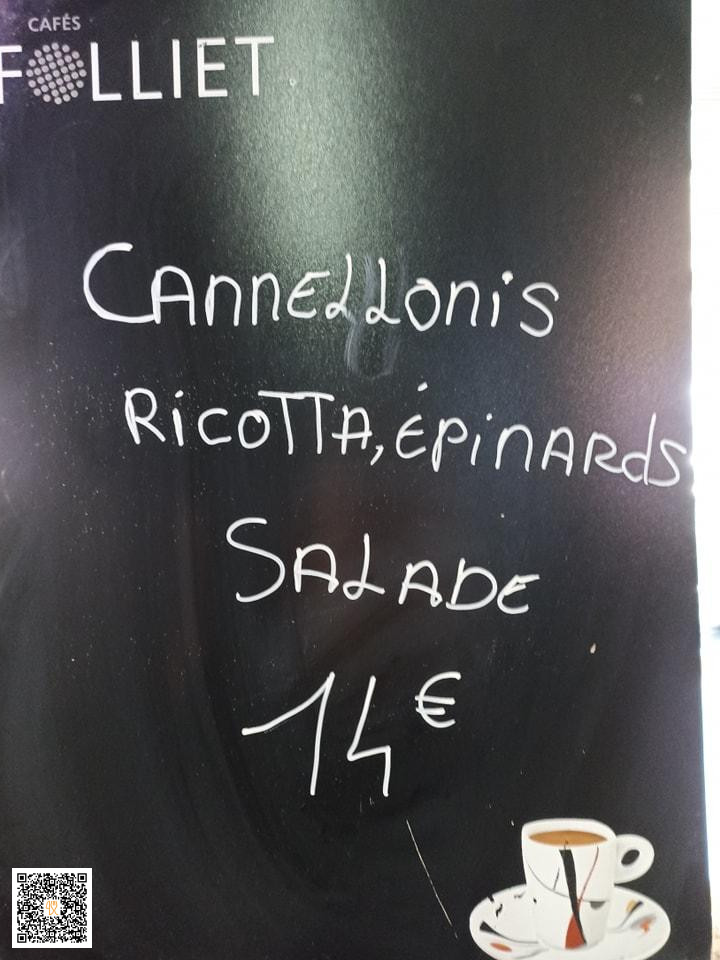 CAFÉS
FOLLIET
CANNELLONiS
RiCOTTA, ÉPiNARdS
SALADE
14€